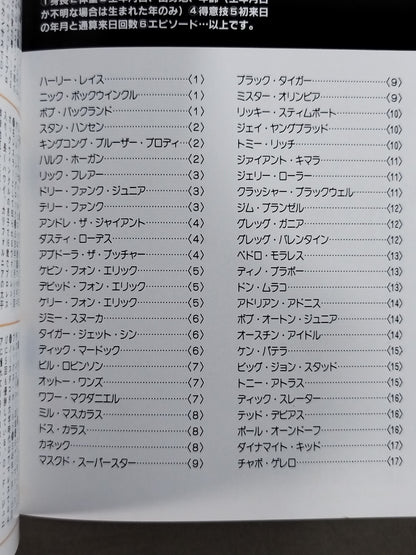 が不明な場合は生まれた年のみ）④得意技⑤初来日
の年月と通算来日回数⑥エピソード…以上です。
ハーリー・レイス〈1〉
ニック・ボックウインクル〈1〉
ボブ・バックランド〈1〉
スタン・ハンセン〈2〉
キングコング・ブルーザー・ブロディ〈2〉
ハルク・ホーガン〈2〉
リック・フレアー〈3〉
ドリー・ファンク・ジュニア〈3〉
テリー・ファンク〈3〉
アンドレ・ザ・ジャイアント〈4〉
ダスティ・ローデス〈4〉
アブドーラ・ザ・ブッチャー〈4〉
ケビン・フォン・エリック〈5〉
デビッド・フォン・エリック〈5〉
ケリー・フォン・エリック〈5〉
ジミー・スヌーカ〈6〉
タイガー・ジェット・シン〈6〉
ディック・マードック〈6〉
ビル・ロビンソン〈7〉
オットー・ワンズ〈7〉
ワフー・マクダニエル〈7〉
ミル・マスカラス〈8〉
ドス・カラス〈8〉
カネック〈8〉
マスクド・スーパースター〈9〉
ブラック・タイガー〈9〉
ミスター・オリンピア〈9〉
リッキー・スティムボート〈10〉
ジェイ・ヤングブラッド〈10〉
トミー・リッチ〈10〉
ジャイアント・キマラ〈11〉
ジェリー・ローラー〈11〉
クラッシャー・ブラックウェル〈11〉
ジム・ブランゼル〈12〉
グレッグ・ガニア〈12〉
グレッグ・バレンタイン〈12〉
ペドロ・モラレス〈13〉
ディノ・ブラボー〈13〉
ドン・ムラコ〈13〉
アドリアン・アドニス〈14〉
ボブ・オートン・ジュニア〈14〉
オースチン・アイドル〈14〉
ケン・パテラ〈15〉
ビッグ・ジョン・スタッド〈15〉
トニー・アトラス〈15〉
ディック・スレーター〈16〉
テッド・デビアス〈16〉
ポール・オーンドーフ〈16〉
ダイナマイト・キッド〈17〉
チャボ・ゲレロ〈17〉